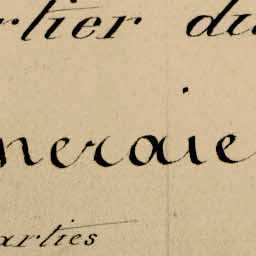 rtier du
neraie
arties